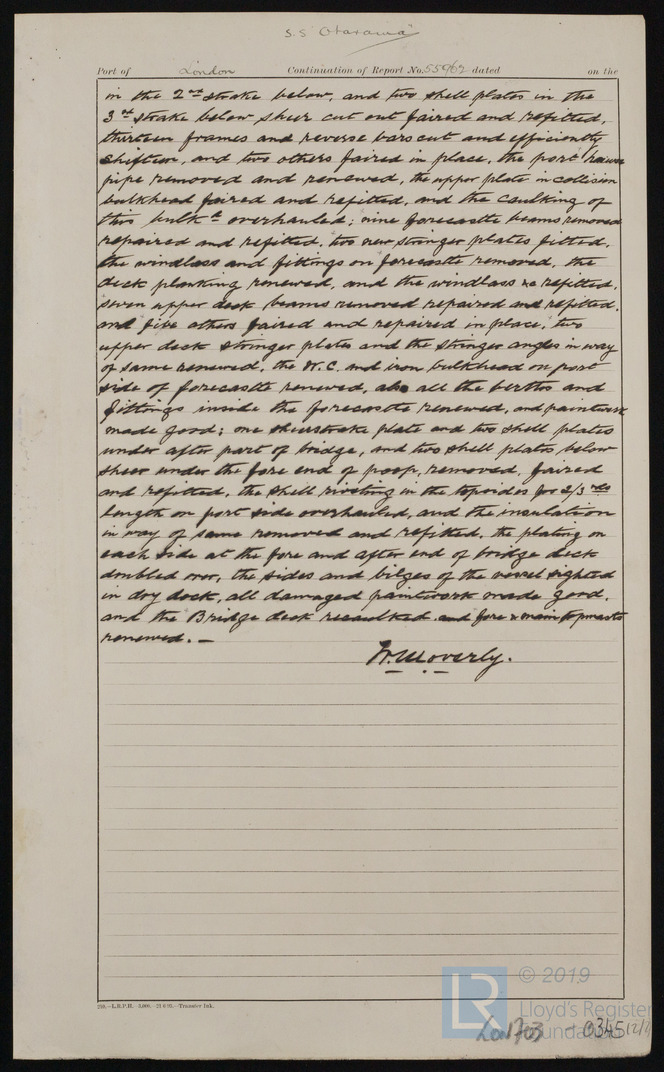 S.S. "Otarama"
Port of London Continuation of Report No. 55962 dated on the
in the 2nd strake below, and two shell plates in the
3rd strake below sheer cut out faired and refitted,
thirteen frames and reverse bars cut and efficiently
shifted, and two others faired in place, the port hawse
pipe removed and renewed, the upper plate in collision
bulkhead faired and refitted, and the caulking of
this bulkd overhauled; nine forecastle beams removed
repaired and refitted, two new stringer plates fitted,
the windlass and fittings on forecastle removed, the
deck planking renewed, and the windlass &c refitted,
seven upper deck beams removed repaired and refitted,
and five others faired and repaired in place, two
upper deck stringer plates and the stringer angles in way
of same renewed, the W.C. and iron bulkhead on port
side of forecastle renewed, also all the berths and
fittings inside the forecastle renewed, and paintwork
made good; one sheerstrake plate and two shell plates
under after part of bridge, and two shell plates below
sheer under the fore end of poop, removed, faired
and refitted, the shell riveting in the topsides for 2/3rds
length on port side overhauled, and the insulation
in way of same removed and refitted, the plating on
each side at the fore and after end of bridge deck
doubled over, the sides and bilges of the vessel sighted
in dry dock, all damaged paintwork made good,
and the Bridge deck recaulked and fore & main topmasts
renewed. —
W. Moverly.
L.R.P.H. Transfer Ink.
LR © 2019
Lloyd's Register
Foundation
LON703 - 0345 (2/2)